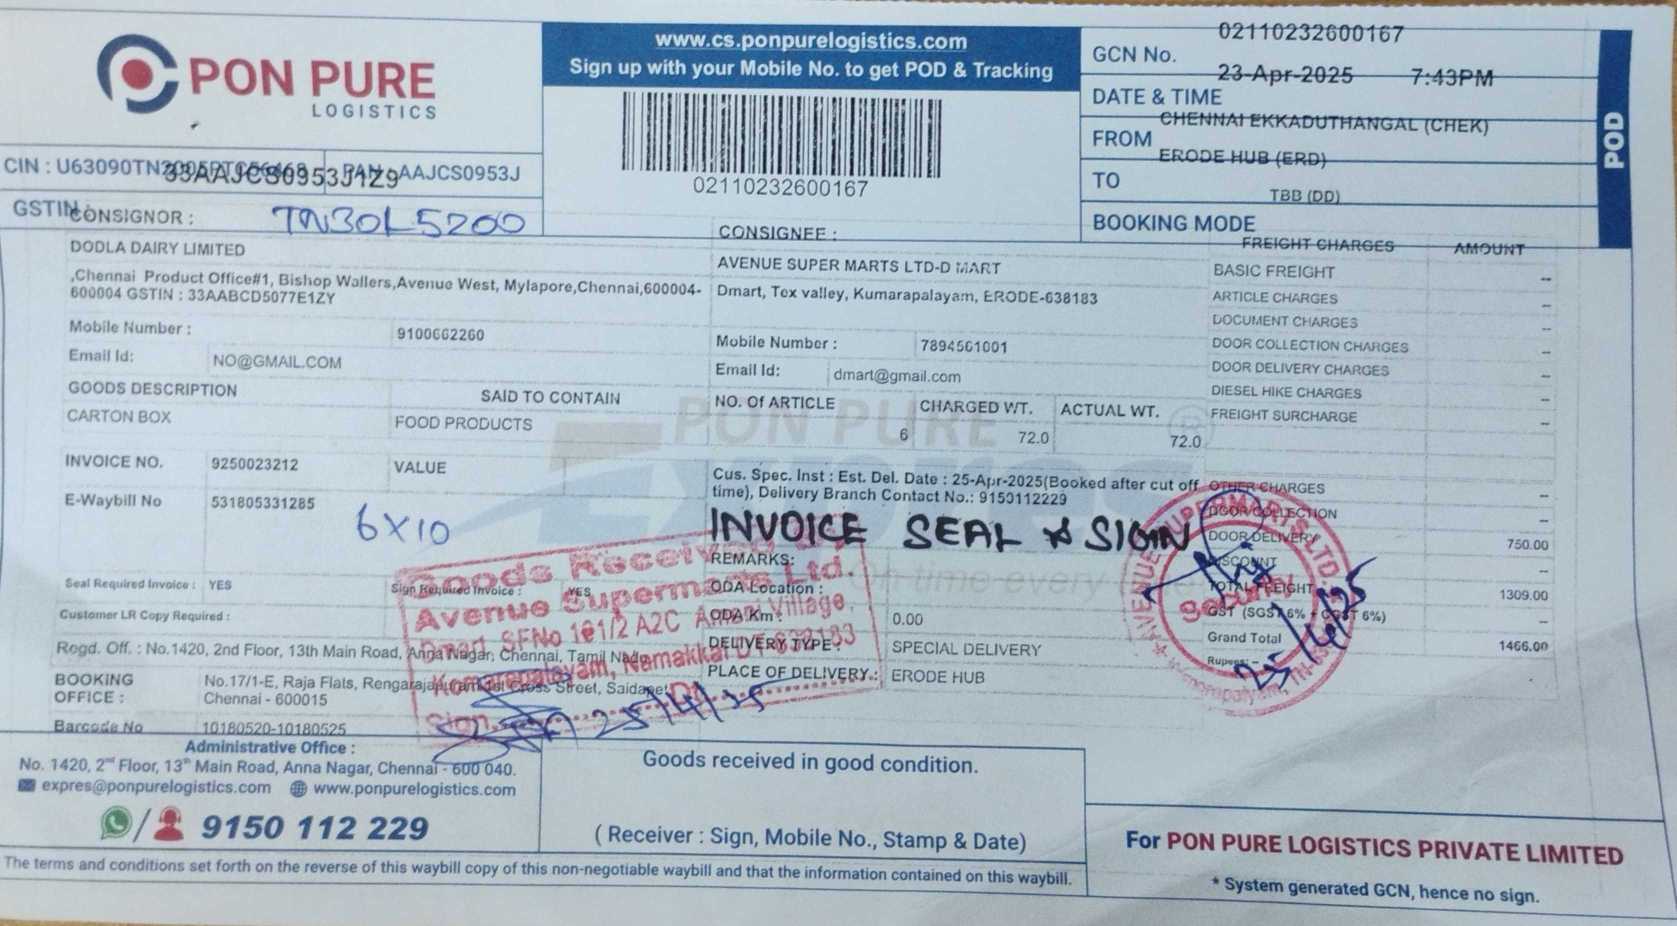 PON PURE
LOGISTICS
www.cs.ponpurelogistics.com
Sign up with your Mobile No. to get POD & Tracking
02110232600167
GCN No. 02110232600167
DATE & TIME 23-Apr-2025 7:43PM
FROM CHENNAI EKKADUTHANGAL (CHEK)
TO ERODE HUB (ERD)
BOOKING MODE TBB (DD)
POD
PAN : AAJCS0953J
GSTIN: 33AAJCS0953J1Z9
TN30L5200
CONSIGNOR :
DODLA DAIRY LIMITED
,Chennai Product Office#1, Bishop Wallers,Avenue West, Mylapore,Chennai,600004-
600004 GSTIN : 33AABCD5077E1ZY
Mobile Number : 9100662260
Email Id: NO@GMAIL.COM
CONSIGNEE :
AVENUE SUPER MARTS LTD-D MART
Dmart, Tex valley, Kumarapalayam, ERODE-638183
Mobile Number : 7894561001
Email Id: dmart@gmail.com
GOODS DESCRIPTION SAID TO CONTAIN
CARTON BOX FOOD PRODUCTS
NO. Of ARTICLE CHARGED WT. ACTUAL WT.
6 72.0 72.0
INVOICE NO. 9250023212 VALUE
E-Waybill No 531805331285
6X10
Cus. Spec. Inst : Est. Del. Date : 25-Apr-2025(Booked after cut off
time), Delivery Branch Contact No.: 9150112229
INVOICE SEAL & SIGN
REMARKS:
ODA Location :
ODA Km : 0.00
DELIVERY TYPE : SPECIAL DELIVERY
PLACE OF DELIVERY.: ERODE HUB
Seal Required Invoice : YES Sign Required Invoice : YES
Customer LR Copy Required :
Regd. Off. : No.1420, 2nd Floor, 13th Main Road, Anna Nagar, Chennai, Tamil Nadu
BOOKING OFFICE : No.17/1-E, Raja Flats, Cross Street, Saidapet
Chennai - 600015
Barcode No 10180520-10180525
FREIGHT CHARGES AMOUNT
BASIC FREIGHT --
ARTICLE CHARGES --
DOCUMENT CHARGES --
DOOR COLLECTION CHARGES --
DOOR DELIVERY CHARGES --
DIESEL HIKE CHARGES --
FREIGHT SURCHARGE --
OTHER CHARGES --
DOOR COLLECTION --
DOOR DELIVERY 750.00
DISCOUNT --
TOTAL FREIGHT 1309.00
GST (SGST 6% + CGST 6%) --
Grand Total 1466.00
Rupees: -
Goods Received
Avenue Supermarts Ltd.
Dmart SFNo 101/2 A2C Village,
Komarapalayam, Namakkal DT-638183
Sign. 25/4/25
AVENUE SUPERMARTS LTD.
25/4/25
Administrative Office :
No. 1420, 2nd Floor, 13th Main Road, Anna Nagar, Chennai - 600 040.
expres@ponpurelogistics.com www.ponpurelogistics.com
9150 112 229
Goods received in good condition.
( Receiver : Sign, Mobile No., Stamp & Date)
For PON PURE LOGISTICS PRIVATE LIMITED
* System generated GCN, hence no sign.
The terms and conditions set forth on the reverse of this waybill copy of this non-negotiable waybill and that the information contained on this waybill.